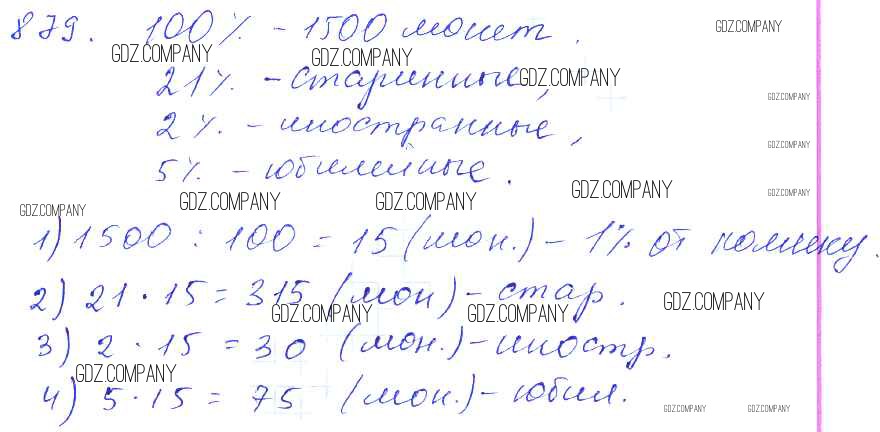 879. 100% - 1500 монет.
GDZ.COMPANY GDZ.COMPANY GDZ.COMPANY
21% - старинные, GDZ.COMPANY
GDZ.COMPANY
2% - иностранные,
GDZ.COMPANY
5% - юбилейные.
GDZ.COMPANY GDZ.COMPANY GDZ.COMPANY GDZ.COMPANY GDZ.COMPANY
1) 1500 : 100 = 15 (мон.) - 1% от
2) 21 · 15 = 315 (мон) - стар.
GDZ.COMPANY GDZ.COMPANY GDZ.COMPANY
3) 2 · 15 = 30 (мон.) - иностр.
GDZ.COMPANY
4) 5 · 15 = 75 (мон.) - юбил.
GDZ.COMPANY GDZ.COMPANY